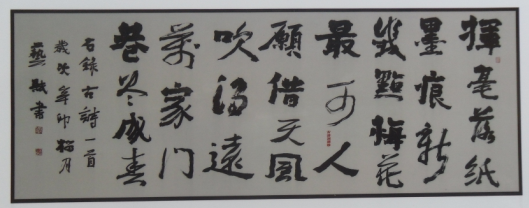 揮毫落紙
墨痕新
幾點梅花
最可人
願借天風
吹得遠
萬家門
巷尽成春
右錄古詩一首
歲次辛卯月
藝書